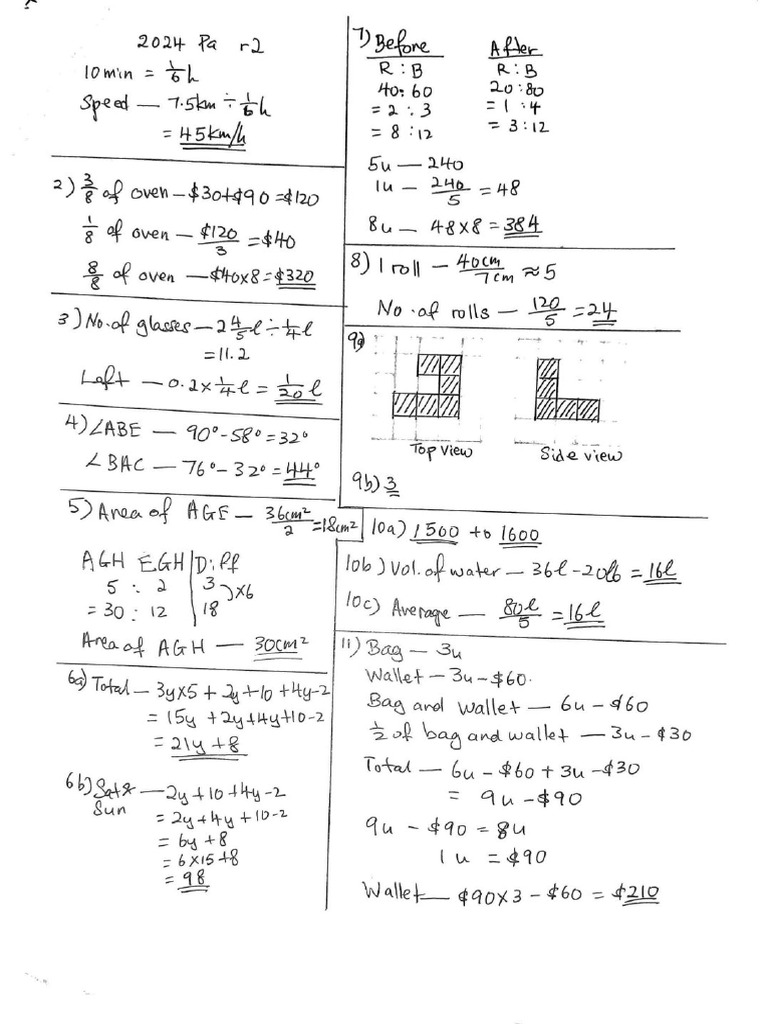 2024 Pa r2
10min = 1/6 h
Speed — 7.5km ÷ 1/6 h
= 45km/h
2) 3/8 of oven — $30+$90 = $120
1/8 of oven — $120/3 = $40
8/8 of oven — $40×8 = $320
3) No. of glasses — 2 4/5 l ÷ 1/4 l
= 11.2
Left — 0.2 × 1/4 l = 1/20 l
4) ∠ABE — 90° - 58° = 32°
∠BAC — 76° - 32° = 44°
5) Area of AGE — 36cm²/2 = 18cm²
AGH EGH | Diff
5 : 2 | 3
= 30 : 12 | 18 )×6
Area of AGH — 30cm²
6a) Total — 3y×5 + 2y+10 + 4y-2
= 15y + 2y+4y+10-2
= 21y + 8
6b) Sat & Sun — 2y+10+4y-2
= 2y+4y+10-2
= 6y+8
= 6×15+8
= 98
7) Before After
R : B R : B
40 : 60 20 : 80
= 2 : 3 = 1 : 4
= 8 : 12 = 3 : 12
5u — 240
1u — 240/5 = 48
8u — 48×8 = 384
8) 1 roll — 40cm/7cm ≈ 5
No. of rolls — 120/5 = 24
9a)
Top View Side view
9b) 3
10a) 1500 to 1600
10b) Vol. of water — 36l - 20l = 16l
10c) Average — 80l/5 = 16l
11) Bag — 3u
Wallet — 3u - $60.
Bag and wallet — 6u - $60
1/2 of bag and wallet — 3u - $30
Total — 6u - $60 + 3u - $30
= 9u - $90
9u - $90 = 8u
1u = $90
Wallet — $90×3 - $60 = $210